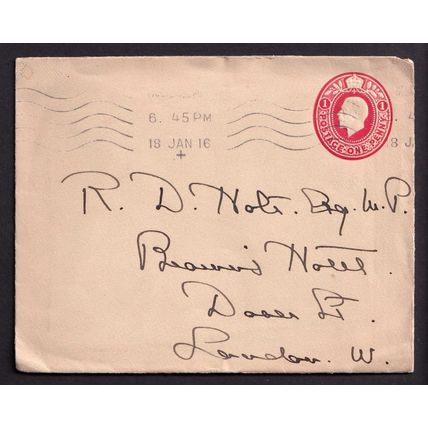 6. 45 PM
18 JAN 16
1 POSTAGE·ONE PENNY 1
8 J
R. D. Holt. Esq. M.P.
Hotel
Dover St.
London. W.